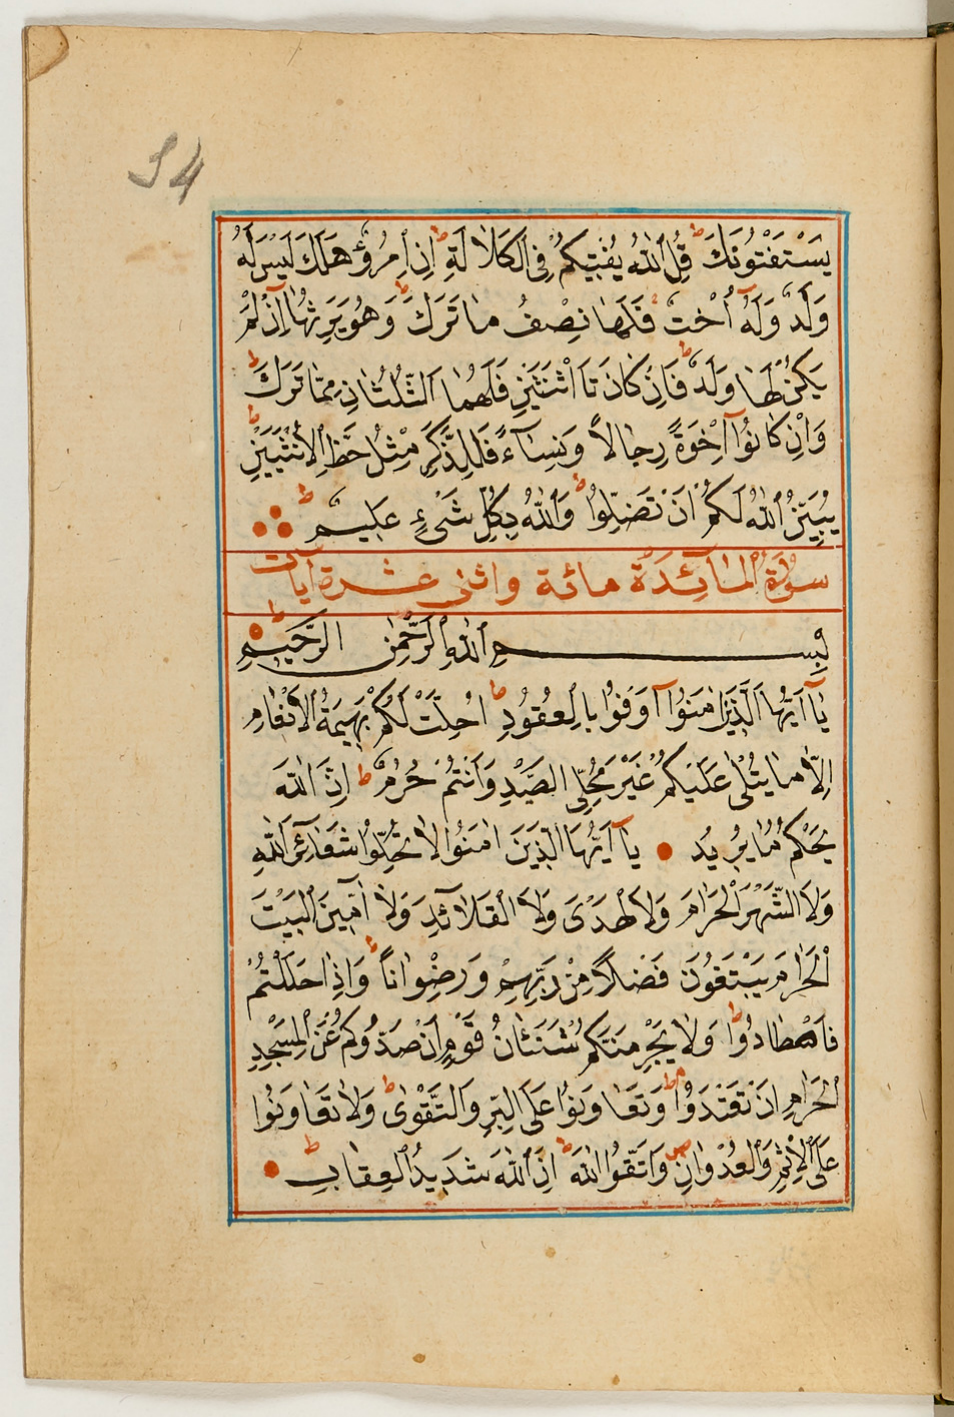 54
يَسْتَفْتُونَكَ ط قُلِ اللّٰهُ يُفْتِيكُمْ فِى الْكَلَالَةِ ط اِنِ امْرُؤٌ هَلَكَ لَيْسَ لَهُ
وَلَدٌ وَلَهُٓ اُخْتٌ فَلَهَا نِصْفُ مَا تَرَكَ ط وَهُوَ يَرِثُهَٓا اِنْ لَمْ
يَكُنْ لَهَا وَلَدٌ ط فَاِنْ كَانَتَا اثْنَتَيْنِ فَلَهُمَا الثُّلُثَانِ مِمَّا تَرَكَ ط
وَاِنْ كَانُٓوا اِخْوَةً رِجَالًا وَنِسَٓاءً فَلِلذَّكَرِ مِثْلُ حَظِّ الْاُنْثَيَيْنِ ط
يُبَيِّنُ اللّٰهُ لَكُمْ اَنْ تَضِلُّوا ط وَاللّٰهُ بِكُلِّ شَىْءٍ عَلِيمٌ ط
سورة المائدة مائة واثنى عشرة آيات
بِسْمِ اللّٰهِ الرَّحْمٰنِ الرَّحِيمِ ط
يَٓا اَيُّهَا الَّذِينَ اٰمَنُٓوا اَوْفُوا بِالْعُقُودِ ط اُحِلَّتْ لَكُمْ بَهِيمَةُ الْاَنْعَامِ
اِلَّا مَا يُتْلٰى عَلَيْكُمْ غَيْرَ مُحِلِّى الصَّيْدِ وَاَنْتُمْ حُرُمٌ ط اِنَّ اللّٰهَ
يَحْكُمُ مَا يُرِيدُ يَٓا اَيُّهَا الَّذِينَ اٰمَنُوا لَا تُحِلُّوا شَعَٓائِرَ اللّٰهِ
وَلَا الشَّهْرَ الْحَرَامَ وَلَا الْهَدْىَ وَلَا الْقَلَٓائِدَ وَلَٓا اٰمِّينَ الْبَيْتَ
الْحَرَامَ يَبْتَغُونَ فَضْلًا مِنْ رَبِّهِمْ وَرِضْوَانًا ط وَاِذَا حَلَلْتُمْ
فَاصْطَادُوا ط وَلَا يَجْرِمَنَّكُمْ شَنَئَانُ قَوْمٍ اَنْ صَدُّوكُمْ عَنِ الْمَسْجِدِ
الْحَرَامِ اَنْ تَعْتَدُوا م ط وَتَعَاوَنُوا عَلَى الْبِرِّ وَالتَّقْوٰى ط وَلَا تَعَاوَنُوا
عَلَى الْاِثْمِ وَالْعُدْوَانِ ص وَاتَّقُوا اللّٰهَ ط اِنَّ اللّٰهَ شَدِيدُ الْعِقَابِ ط